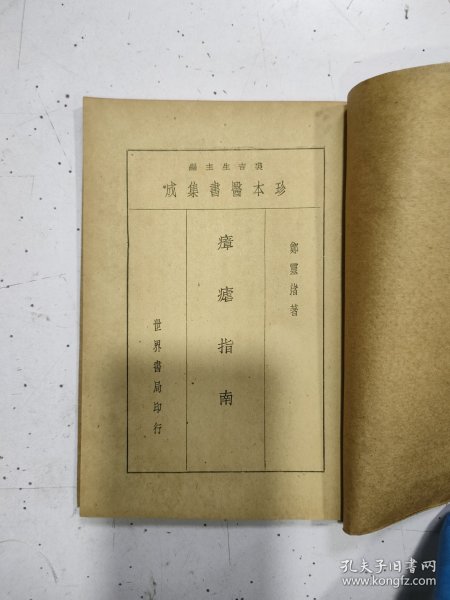 裘吉生主編
珍本醫書集成
鄭靈渚著
瘴瘧指南
世界書局印行
孔夫子旧书网
www.kongfz.com